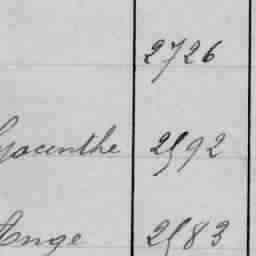 2726
yacinthe 2592
Ange 2583